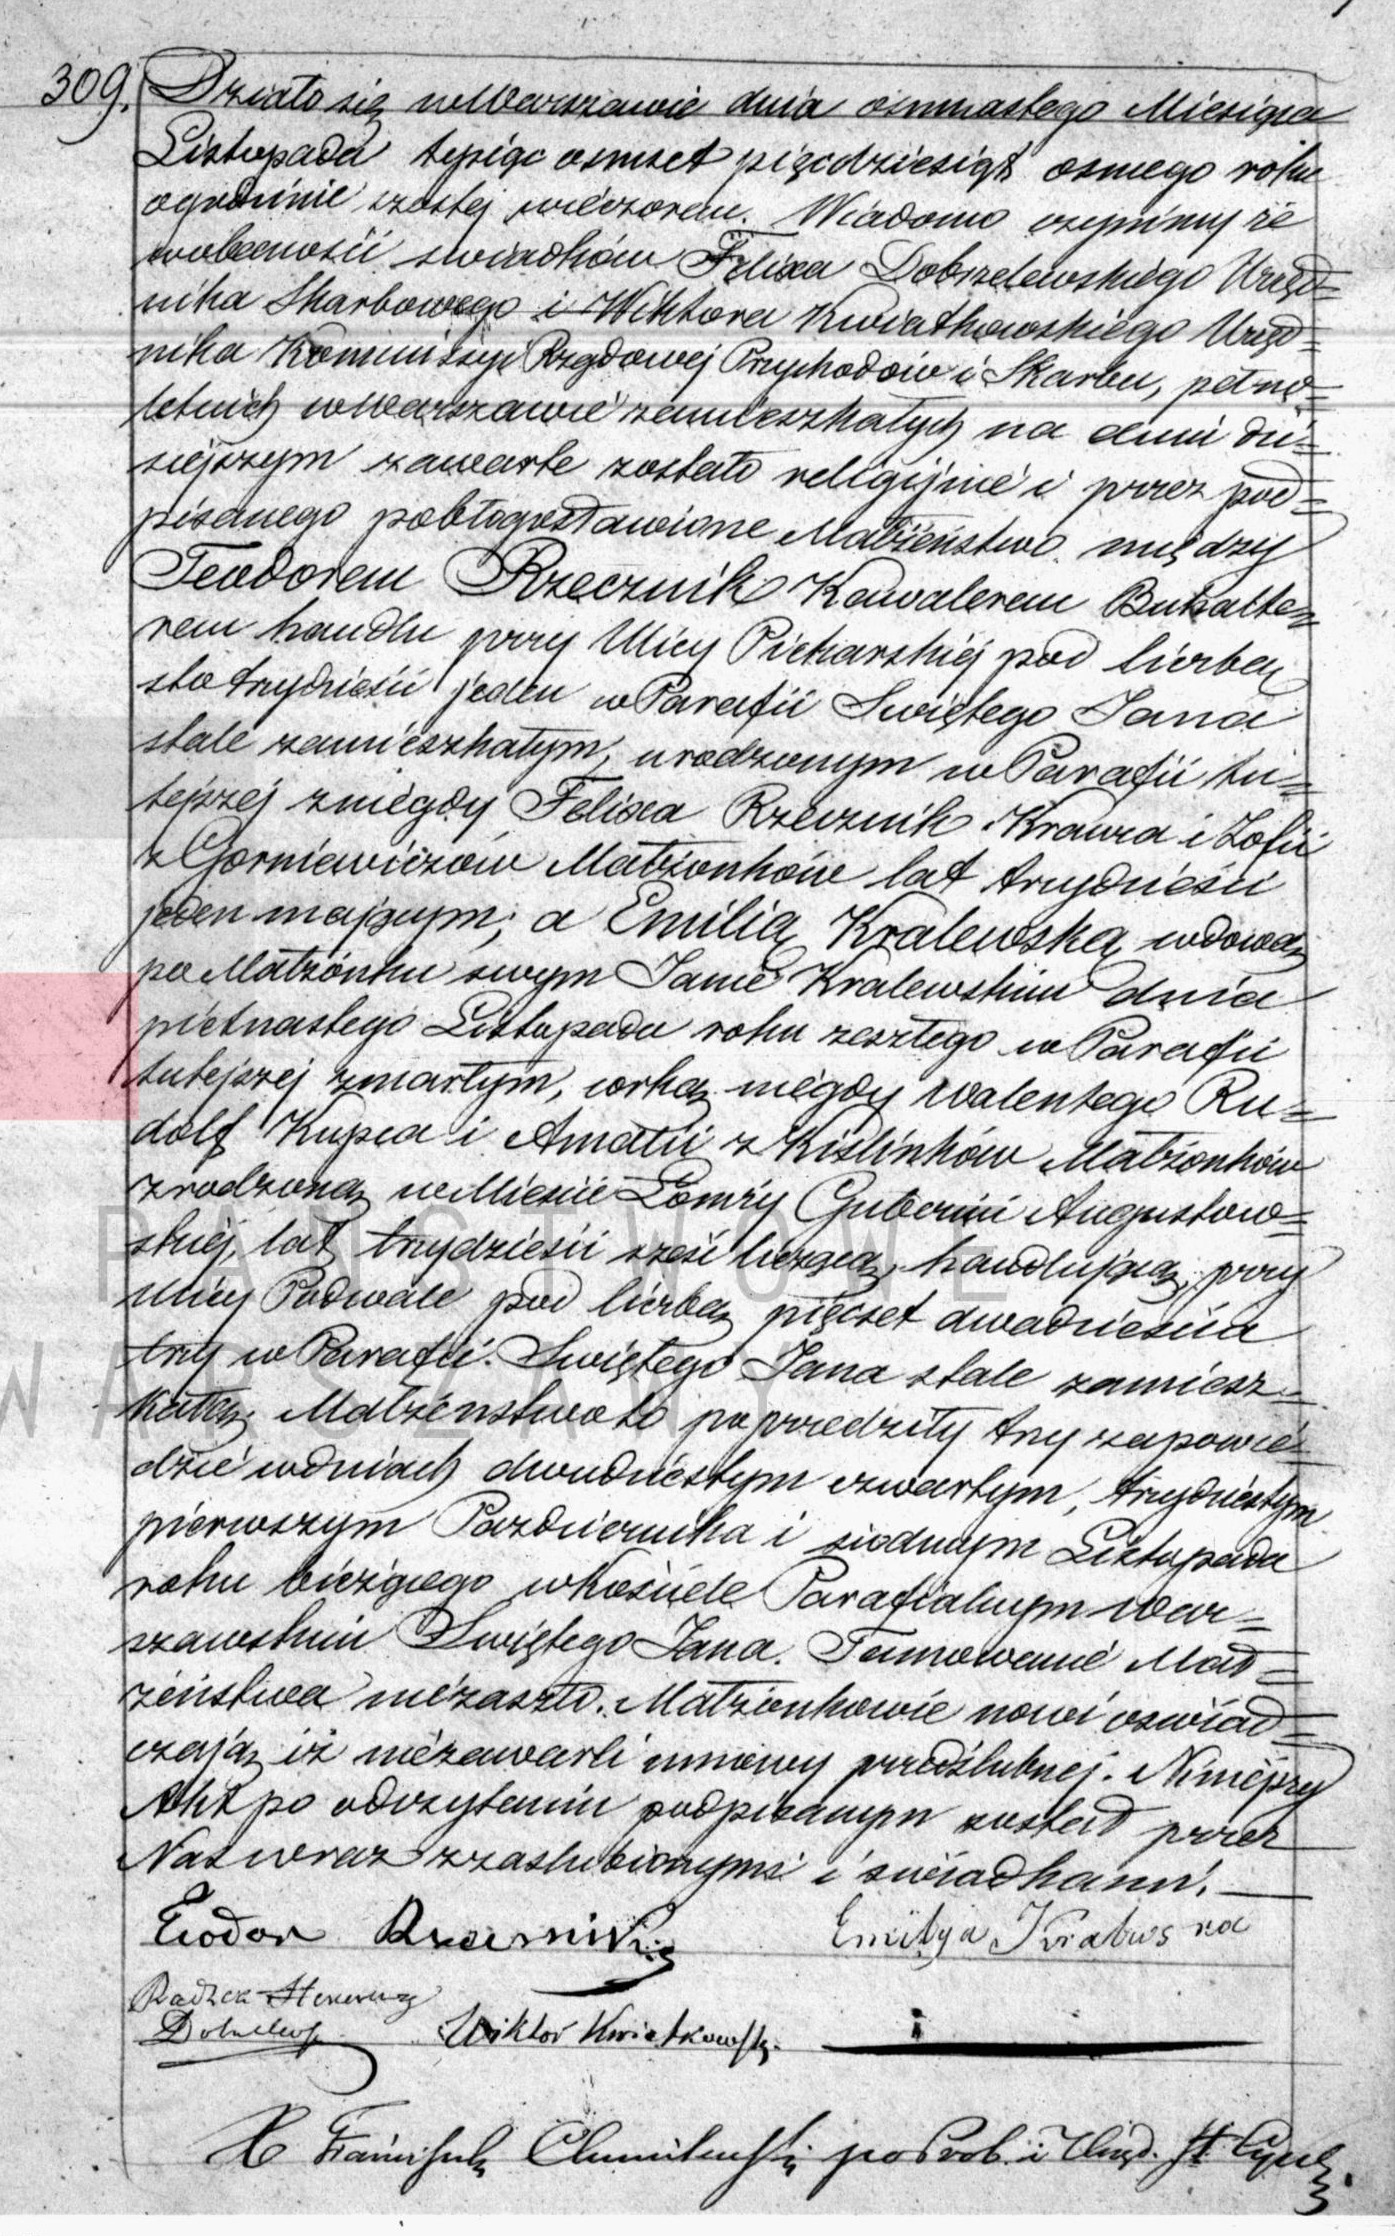 309. Działo się w Warszawie dnia osmnastego Miesiąca
Listopada tysiąc osmset pięcdziesiąt osmego roku
o godzinie szostej wieczorem. Wiadomo czyniemy że
w obecności swiadków Felixa Dobrzelewskiego Urzęd=
nika Skarbowego i Wiktora Kwiatkowskiego Urzęd=
nika Kommissyi Rządowej Przychodów i Skarbu, pełno=
letnich w Warszawie zamieszkałych na dniu dzi=
siejszym zawarte zostało religijnie i przez pod=
pisanego pobłogosławione Małżeństwo między
Teodorem Rzecznik Kawalerem Buchalte=
rem handlu przy Ulicy Piekarskiej pod liczbą
sto trzydzieści jeden w Parafii Swiętego Jana
stale zamieszkałym, urodzonym w Parafii tu=
tejszej z niegdy Felixa Rzecznik Krawca i Zofii
z Gorniewiczów Małżonków lat trzydzieści
jeden mającym; a Emilią Kralewską wdową
po Małżonku swym Janie Kralewskim dnia
piętnastego Listopada roku zeszłego w Parafii
tutejszej zmarłym, corką niegdy Walentego Ru=
dolf Kupca i Amalii z Kislinków Małżonków
zrodzoną w Mieście Łomży Gubernii Augustow=
skiej, lat trzydzieści sześć liczącą, handlującą, przy
Ulicy Podwale pod liczbą pięcset dwadzieścia
trzy w Parafii Swiętego Jana stale zamiesz=
kałą. Małżeństwo to poprzedziły trzy zapowie=
dzie w dniach dwudziestym czwartym, trzydziestym
pierwszym Pazdziernika i siodmym Listopada
roku bieżącego w Kościele Parafialnym War=
szawskim Swiętego Jana. Tamowanie Mał=
żeństwa nie zaszło. Małżonkowie nowi oswiad=
czają iż nie zawarli umowy przedślubnej. Niniejszy
Akt po odczytaniu podpisanym został przez
Nas wraz z zaslubionymi i swiadkami.
Teodor Rzecznik Emilija Kralewska
Radzca
Wiktor Kwiatkowski
X Franciszek